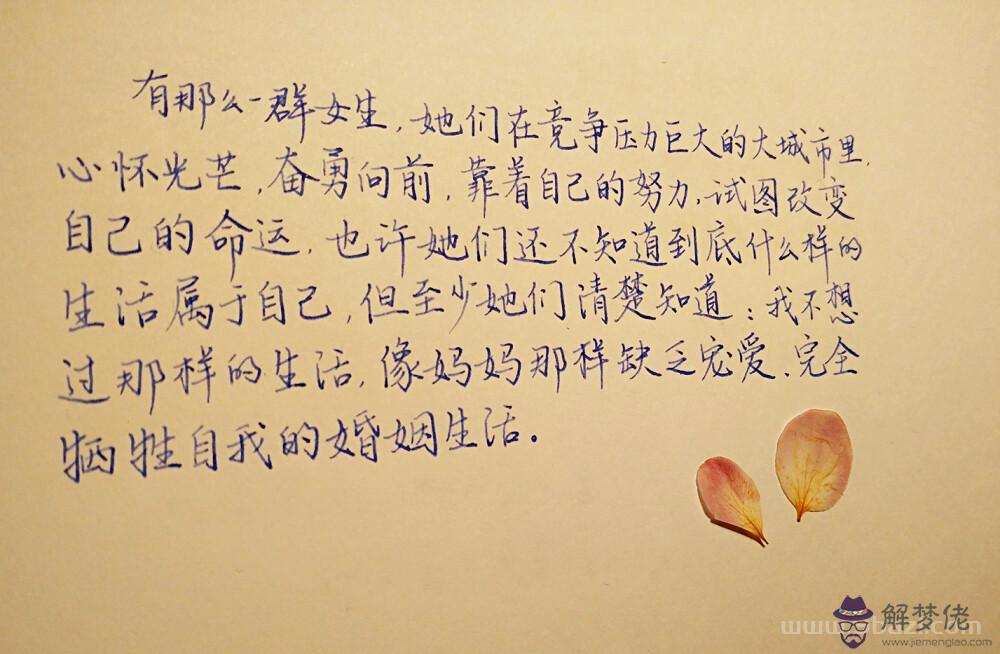 有那么一群女生,她们在竞争压力巨大的大城市里,
心怀光芒,奋勇向前,靠着自己的努力,试图改变
自己的命运,也许她们还不知道到底什么样的
生活属于自己,但至少她们清楚知道:我不想
过那样的生活,像妈妈那样缺乏宠爱、完全
牺牲自我的婚姻生活。
解梦佬
www.jiemenglao.com